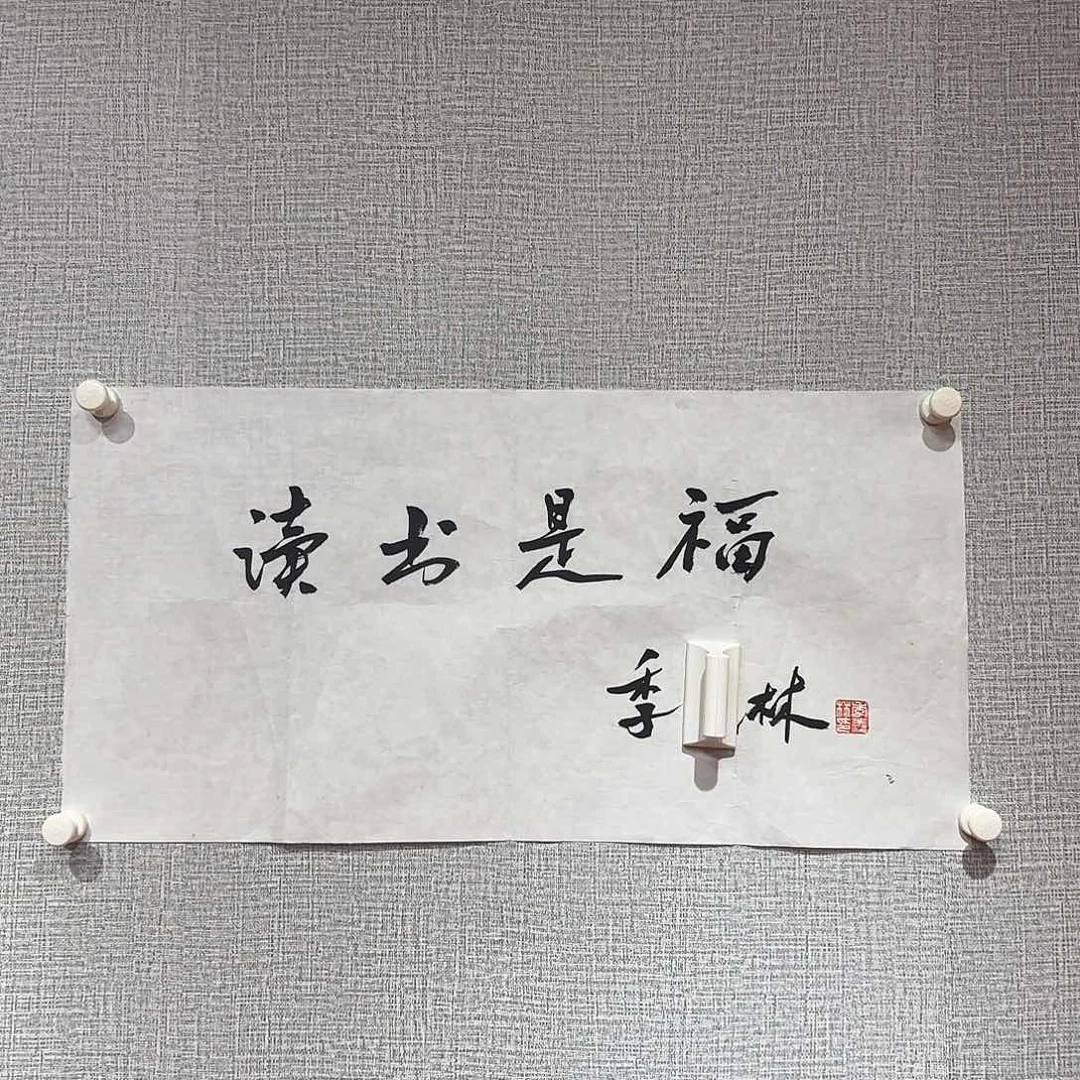 读书是福
季 林